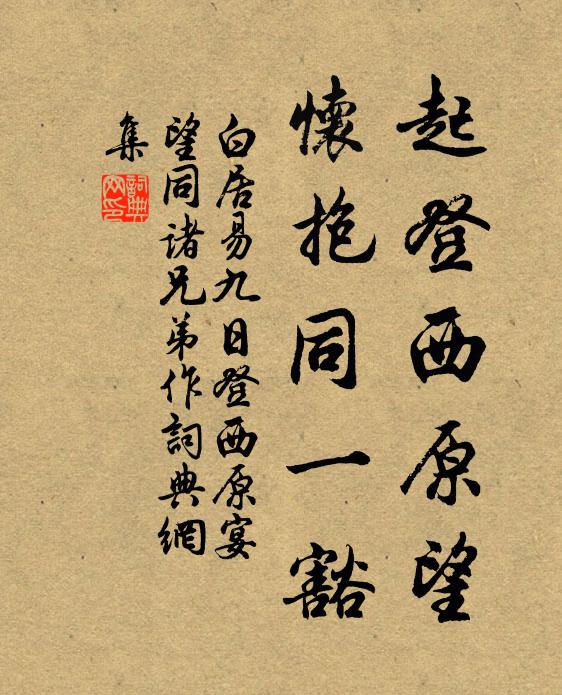 起登西原望
懷抱同一豁
白居易九日登西原宴
望同诸兄弟作詞典網
集
詞典
网印